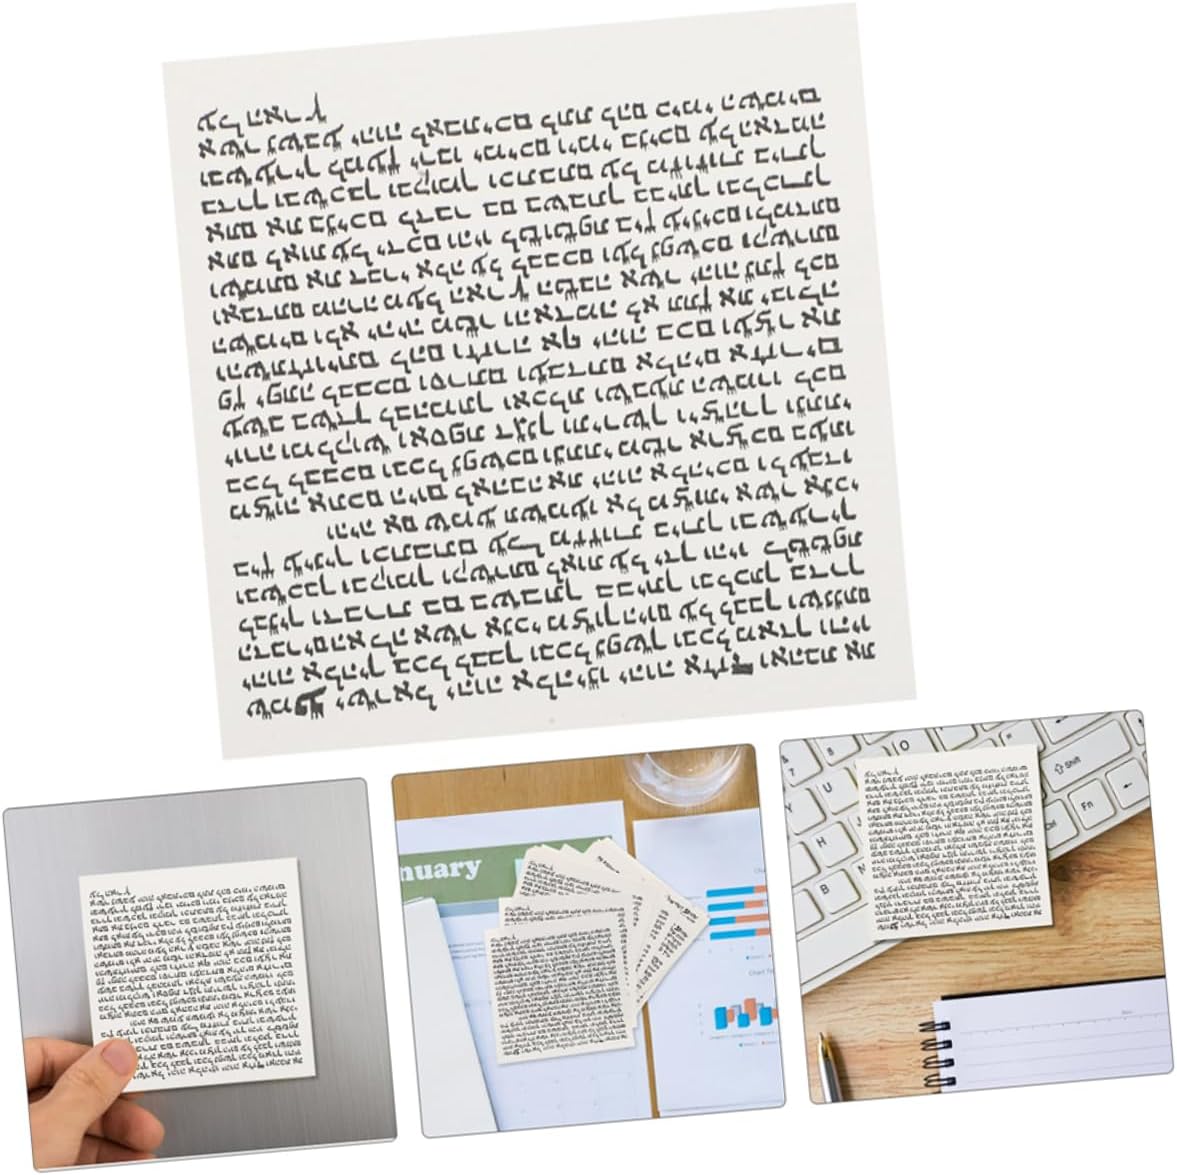 שמע ישראל יהוה אלהינו יהוה אחד ואהבת את
יהוה אלהיך בכל לבבך ובכל נפשך ובכל מאדך והיו
הדברים האלה אשר אנכי מצוך היום על לבבך ושננתם
לבניך ודברת בם בשבתך בביתך ובלכתך בדרך
ובשכבך ובקומך וקשרתם לאות על ידך והיו לטטפת
בין עיניך וכתבתם על מזזות ביתך ובשעריך
והיה אם שמע תשמעו אל מצותי אשר אנכי
מצוה אתכם היום לאהבה את יהוה אלהיכם ולעבדו
בכל לבבכם ובכל נפשכם ונתתי מטר ארצכם בעתו
יורה ומלקוש ואספת דגנך ותירשך ויצהרך ונתתי
עשב בשדך לבהמתך ואכלת ושבעת השמרו לכם
פן יפתה לבבכם וסרתם ועבדתם אלהים אחרים
והשתחויתם להם וחרה אף יהוה בכם ועצר את
השמים ולא יהיה מטר והאדמה לא תתן את יבולה
ואבדתם מהרה מעל הארץ הטבה אשר יהוה נתן לכם
ושמתם את דברי אלה על לבבכם ועל נפשכם וקשרתם
אתם לאות על ידכם והיו לטוטפת בין עיניכם ולמדתם
אתם את בניכם לדבר בם בשבתך בביתך ובלכתך
בדרך ובשכבך ובקומך וכתבתם על מזוזות ביתך
ובשעריך למען ירבו ימיכם וימי בניכם על האדמה
אשר נשבע יהוה לאבתיכם לתת להם כימי השמים
על הארץ
nuary
Shift
Fn